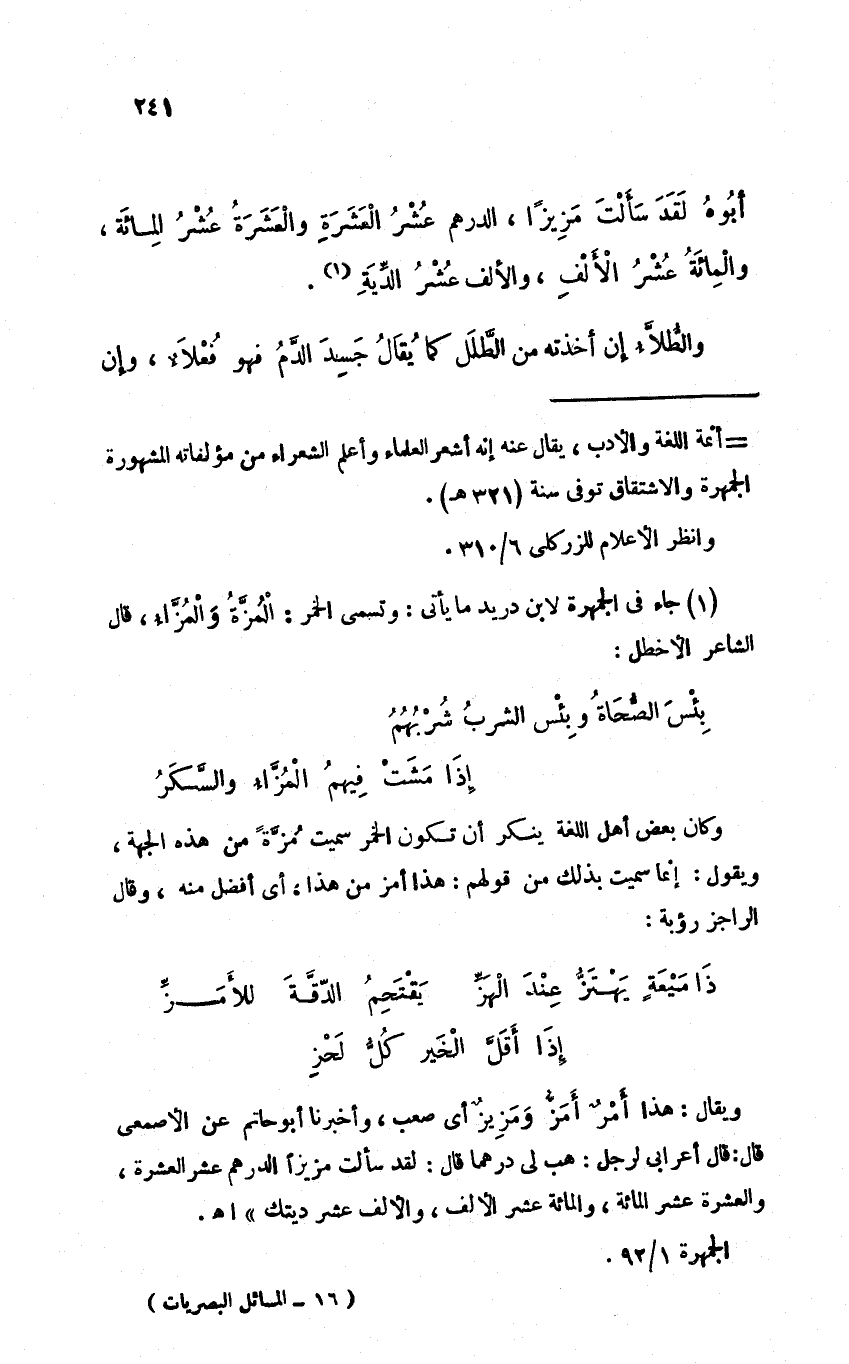 ٢٤١
أبُوهُ لَقَدَ سَأَلْتَ مَزِيزًا ، الدرهم عُشْرُ الْعَشَرَةِ والْعَشَرَةُ عُشْرُ المِـائَة ،
والْمِائَةُ عُشْرُ الْأَلْفِ ، والألف عشْرُ الدِّيَةِ (١) .
والطُّلاَّءِ إن أخذته من الطَّلَل كما يُقَالُ جَسِدَ الدَّمُ فهو فُعْلاَء ، وإن
= أئمة اللغة والأدب ، يقال عنه إنه أشعر العلماء وأعلم الشعراء من مؤلفاته المشهورة
الجمهرة والاشتقاق توفى سنة (٣٢١ هـ) .
وانظر الأعلام للزركلى ٣١٠/٦ .
(١) جاء فى الجمهرة لابن دريد ما يأتى : وتسمى الخمر : الْمُزَّةُ وَالْمُزَّاءِ ، قال
الشاعر الأخطل :
بِئْسَ الصُّحَاةُ وبِئْس الشربُ شُرْبُهُمُ
إِذَا مَشَتْ فِيهِمُ الْمُزَّاءِ والسَّكَرُ
وكان بعض أهل اللغة ينكر أن تكون الخمر سميت مُزةً من هذه الجهة ،
ويقول : إنما سميت بذلك من قولهم : هذا أمز من هذا ؛ أى أفضل منه ، وقال
الراجز رؤبة :
ذَا مَيْعَةٍ يَهْتَزُّ عِنْدَ الْهَزِّ يَقْتَحِمُ الدّقَّةَ للأَمَــزِّ
إِذَا أَقَلَّ الْخَير كُلُّ لَحْزِ
ويقال : هذا أَمْرٌ أَمَزُّ وَمَزِيزٌ أى صعب ، وأخبرنا أبو حاتم عن الأصمعى
قال : قال أعرابى لرجل : هب لى درهما قال : لقد سألت مزيزاً الدرهم عشر العشرة ،
والعشرة عشر المائة ، والمائة عشر الألف ، والألف عشر ديتك » اهـ .
الجمهرة ٩٢/١ .
( ١٦ ــ المسائل البصريات )